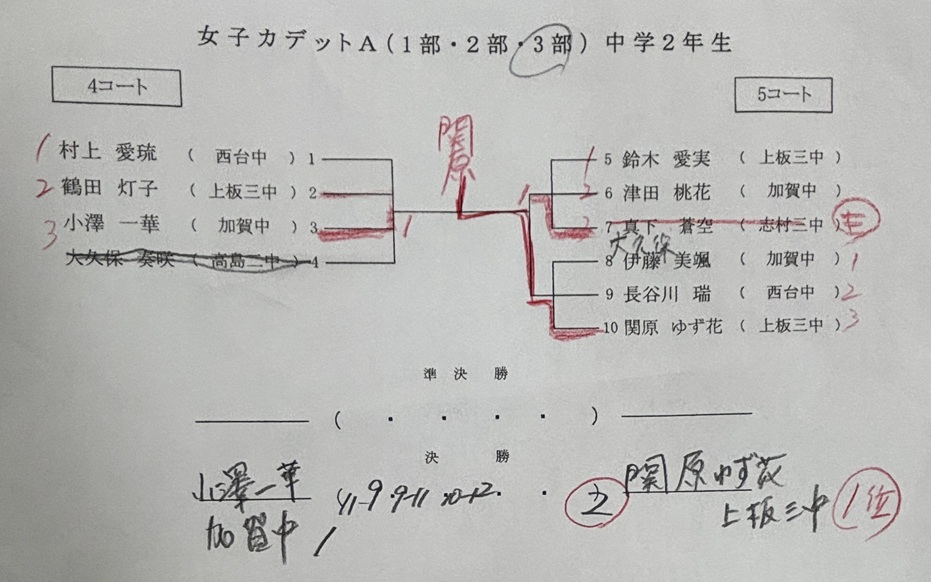 女子カデットA(1部・2部・3部)中学2年生
4コート
5コート
関原
1 村上 愛琉 ( 西台中 ) 1
2 鶴田 灯子 ( 上板三中 ) 2
3 小澤 一華 ( 加賀中 ) 3
大久保 奏咲 ( 高島二中 ) 4
1
1
1 5 鈴木 愛実 ( 上板三中 )
2 6 津田 桃花 ( 加賀中 )
7 真下 蒼空 ( 志村三中 )
大久保
8 伊藤 美颯 ( 加賀中 ) 1
9 長谷川 瑞 ( 西台中 ) 2
10 関原 ゆず花 ( 上板三中 ) 3
準決勝
( ・ ・ ・ ・ )
決勝
小澤一華 11-9 9-11 10-12 ・ ② 関原ゆず花
加賀中 1 上板三中 1位